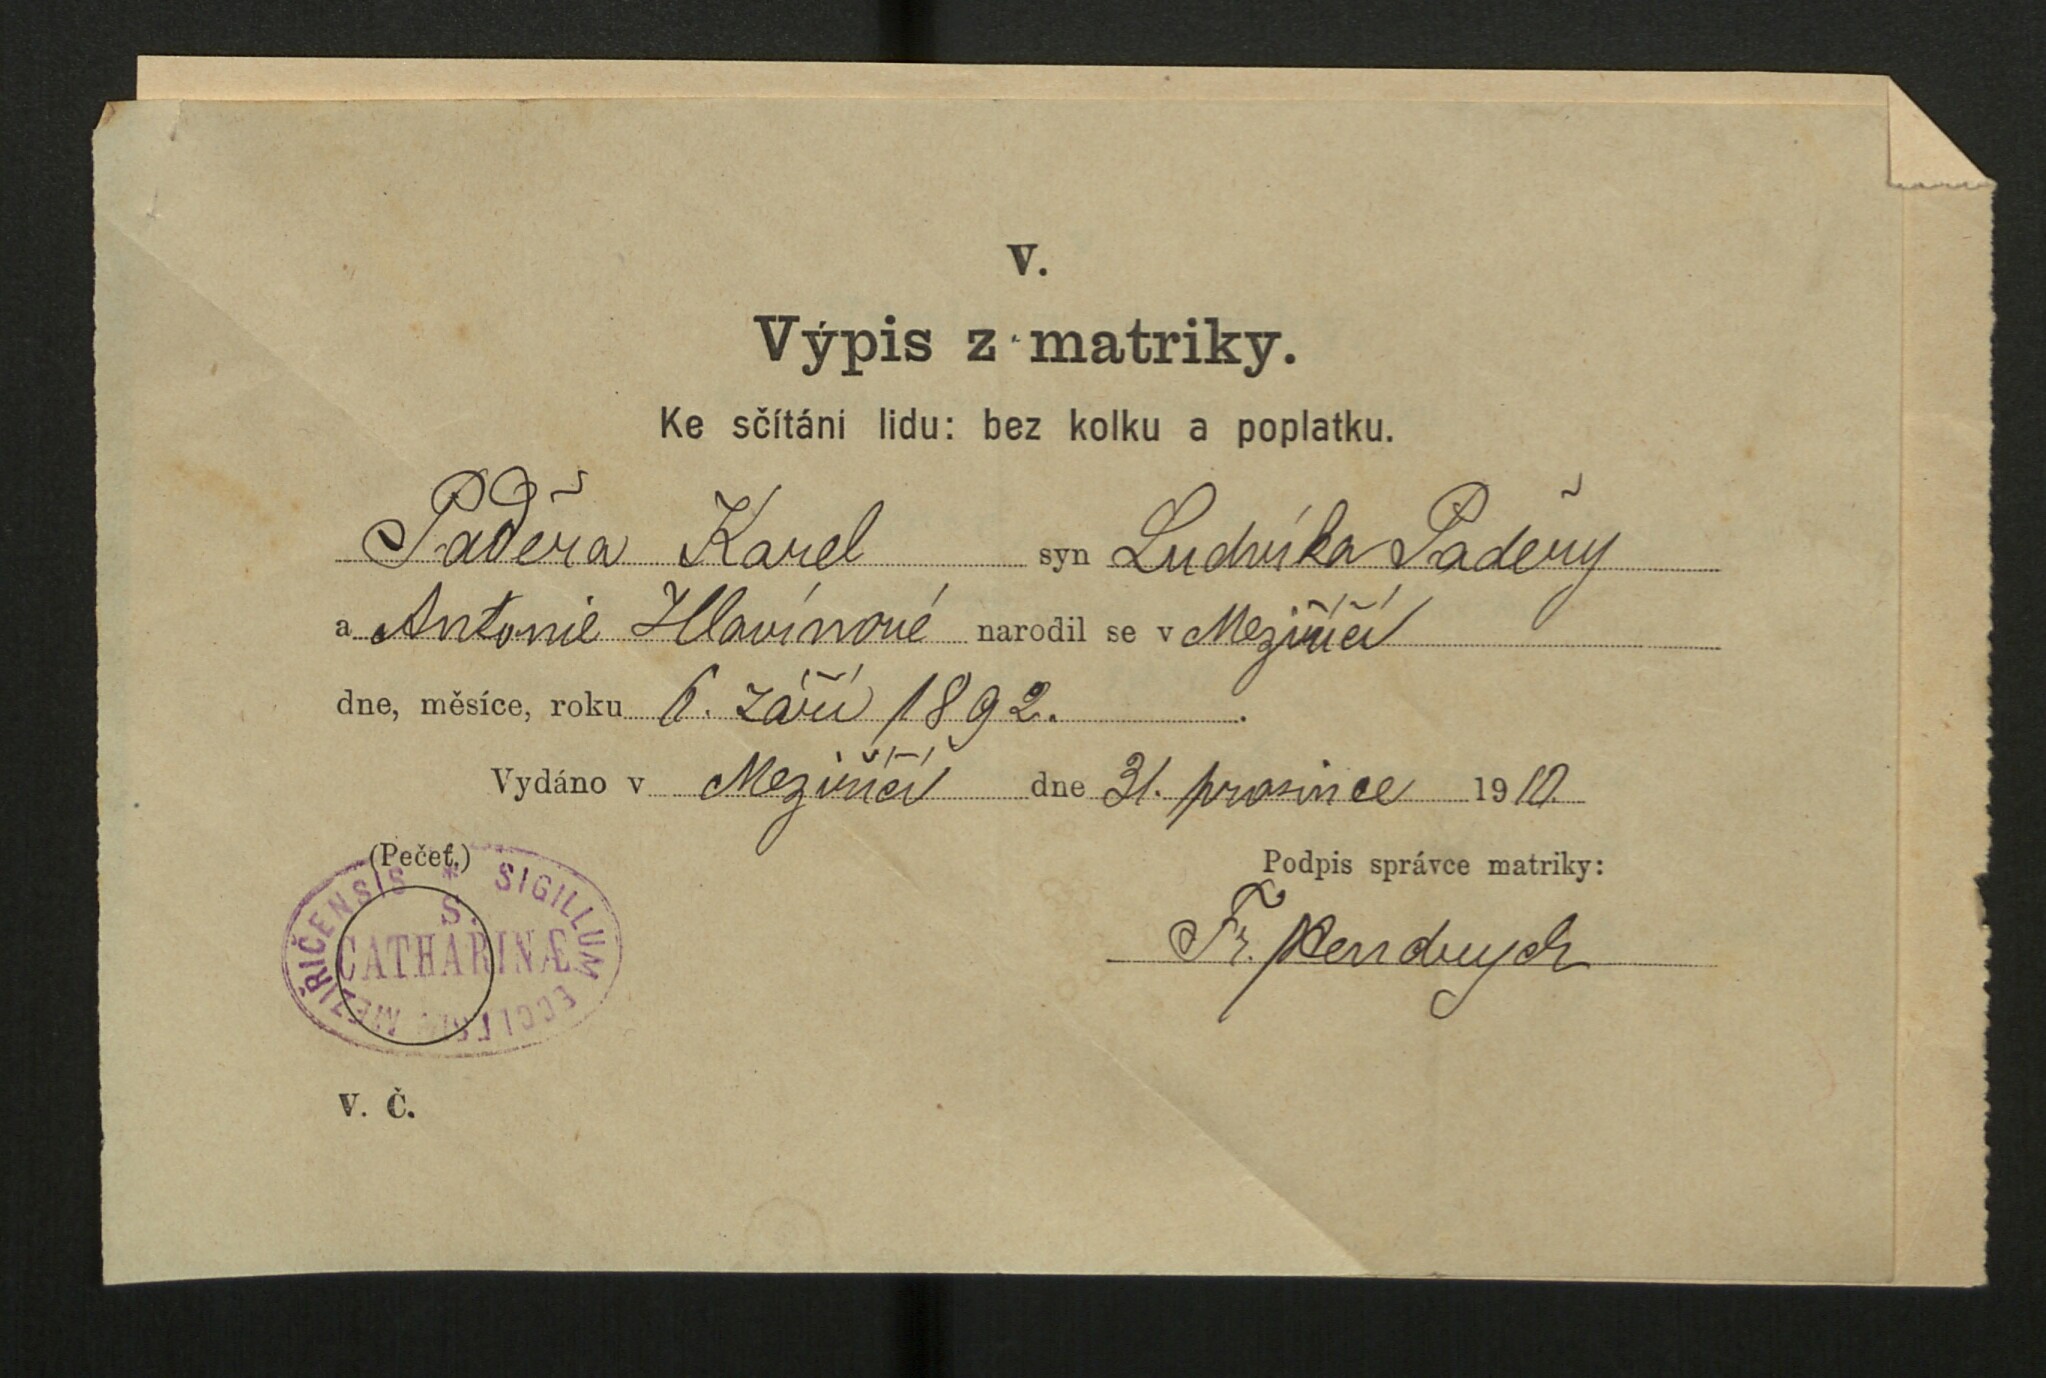 V.
Výpis z matriky.
Ke sčítání lidu: bez kolku a poplatku.
Paděra Karel syn Ludvíka Paděry
a Antonie Hlavínové narodil se v Meziříčí
dne, měsíce, roku 6. září 1892.
Vydáno v Meziříčí dne 31. prosince 1910.
(Pečeť.) Podpis správce matriky:
SIGILLUM ECCLESIÆ MEZIŘIČENSIS *
S.
CATHARINÆ
Fr. Kendrych
V. Č.